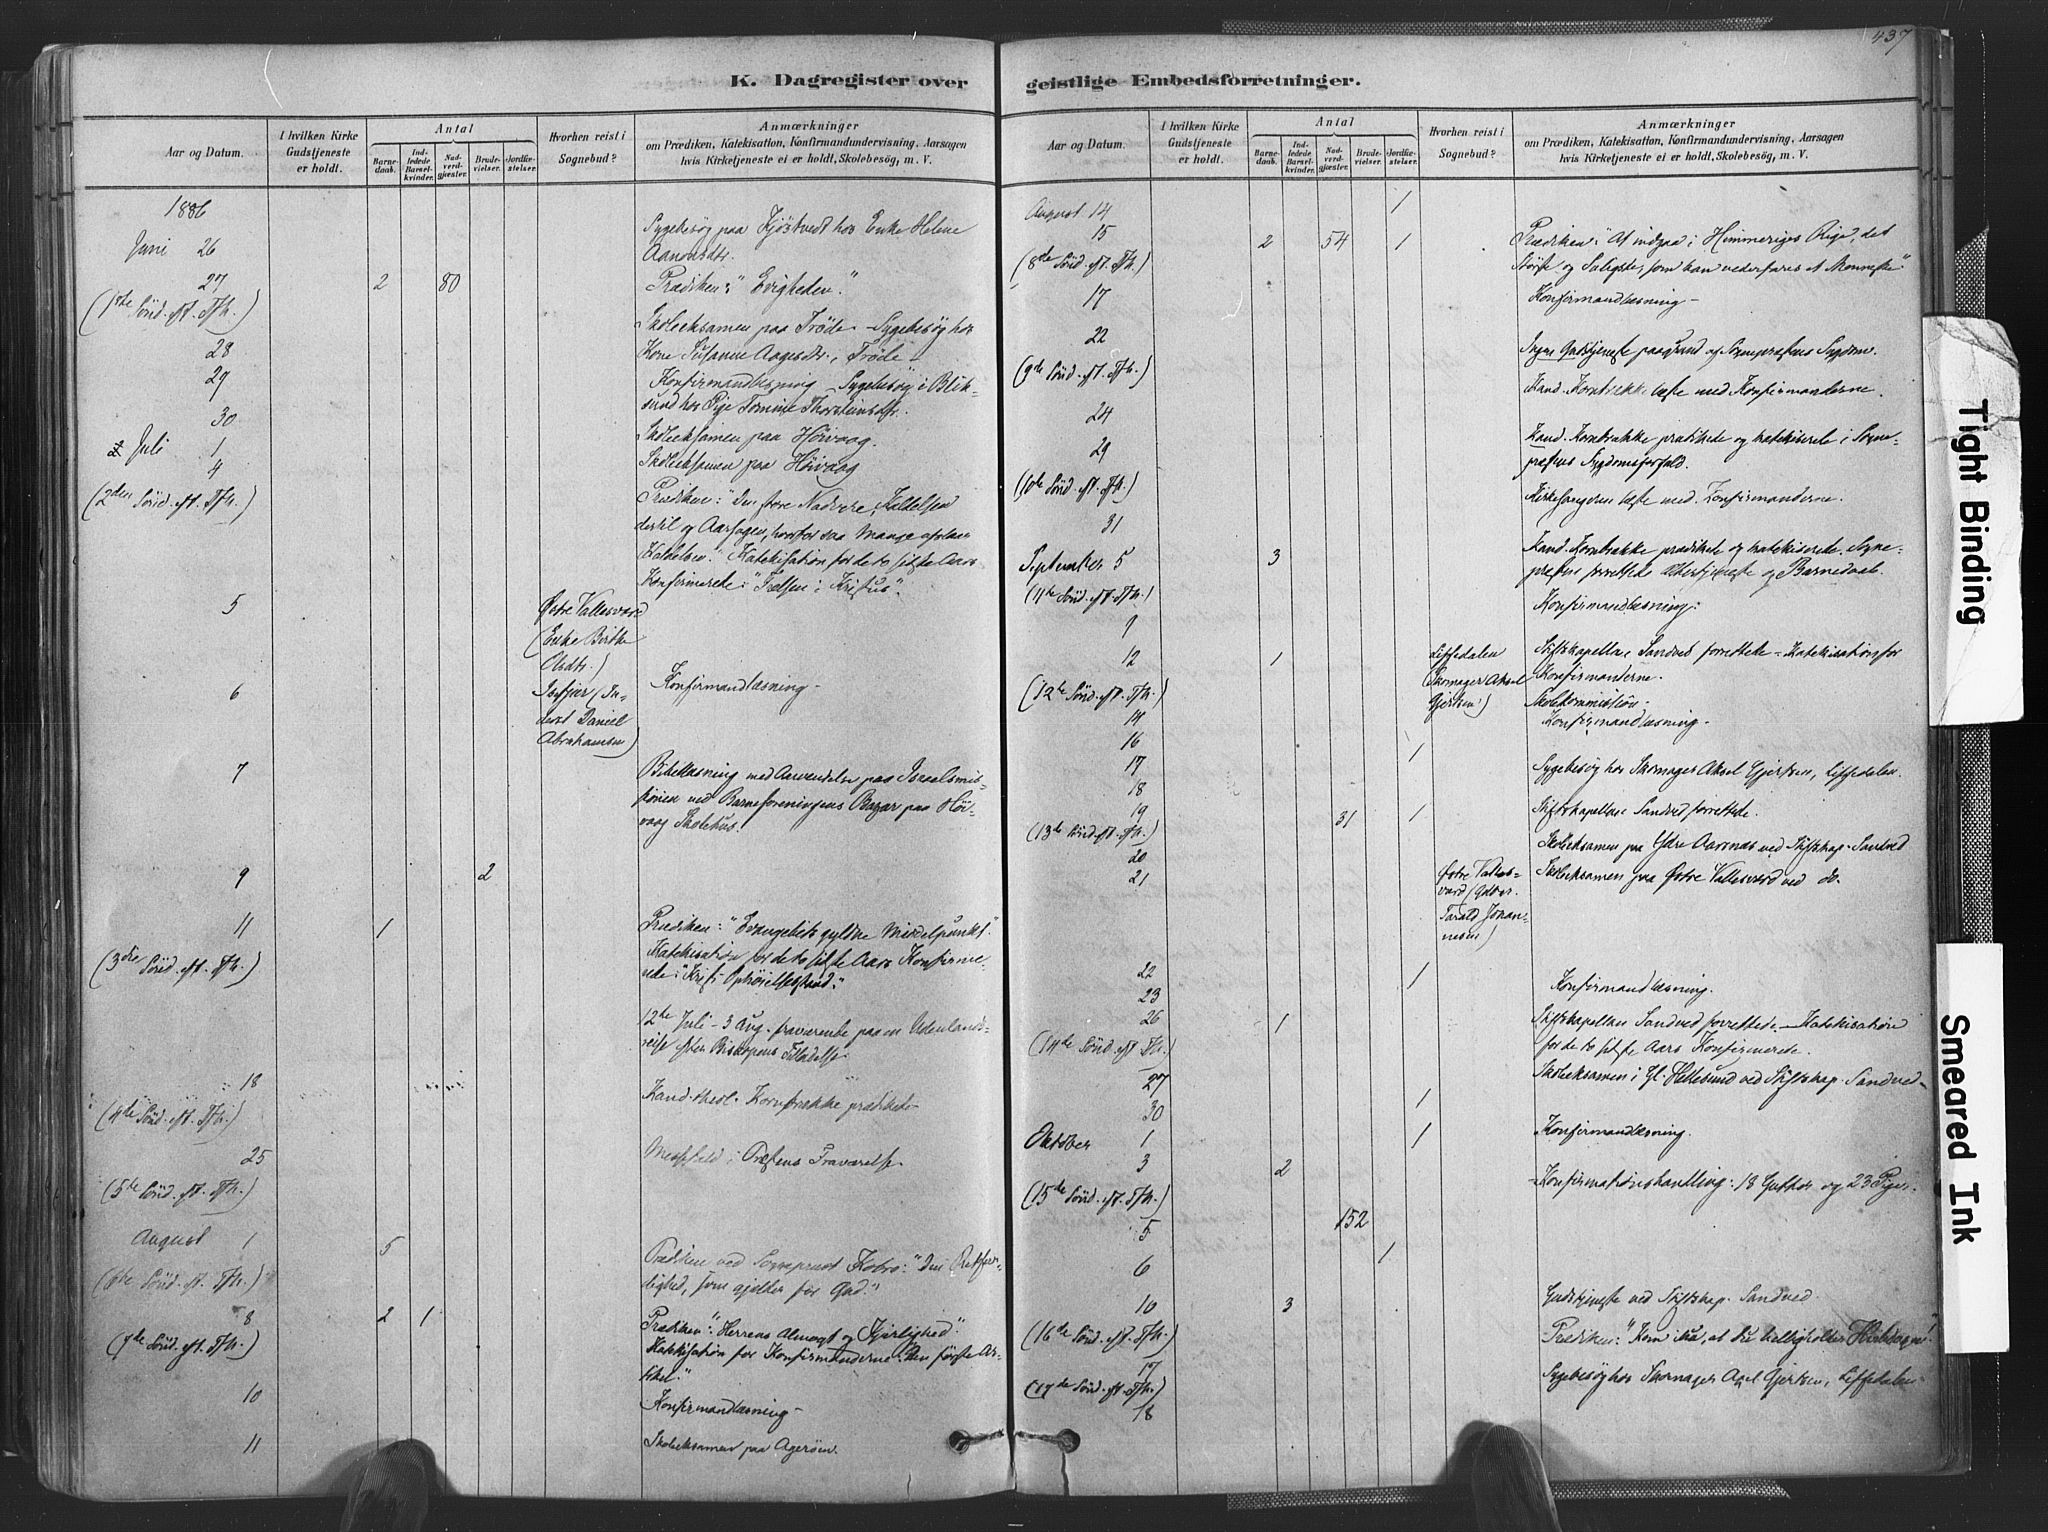 437
K. Dagregister over
geistlige Embedsforretninger.
Aar og Datum.
I hvilken Kirke
Gudstjeneste
er holdt.
Antal
Barne-
daab.
Ind-
ledede
Barsel-
kvinder.
Nad-
verd-
gjæster.
Brude-
vielser.
Jordfæ-
stelser.
Hvorhen reist i
Sognebud?
Anmærkninger
om Prædiken, Katekisation, Konfirmandundervisning, Aarsagen
hvis Kirketjeneste ei er holdt, Skolebesøg, m. V.
1886
Juni 26
Sygebesøg paa Kjøstvedt hos Enke Helene
Aanonsdtr.
27 2 80 Prædiken: "Evigheden".
(1ste Sönd. eft. Tfh.)
28 Skoleeksamen paa Trøde – Sygebesøg hos
Kone Susanne Aagesdr., Trøde –
29 Konfirmandlæsning – Sygebesøg i Blik-
sund hos Pige Tomine Thorsteinsdtr.
30 Skoleeksamen paa Høivaag.
Juli 1 Skoleeksamen paa Høivaag
4
(2den Sönd. eft. Tfh.)
Prædiken: "Den store Nadvere, Kaldelsen
dertil og Aarsagen, hvorfor saa Mange afslaar
Kaldelsen". Katekisation for de to sidste Aars
Konfirmerede: "Frelsen i Kristus".
5 Østre Vallesværd
(Enke Birthe
Olsdtr.)
6 Isefjær (In-
derst Daniel
Abrahamsen)
Konfirmandlæsning –
7 Bibellæsning med Anvendelse paa Israelsmis-
sionen ved Barneforeningens Bazar paa Høi-
vaag Skolehus.
9 2
11 1 Prædiken: "Evangeliets gyldne Middelpunkt".
(3die Sönd. eft. Tfh.)
Katekisation for de to sidste Aars Konfirme-
rede: "Kristi Ophøielsesstand."
12te Juli – 3 Aug. fraværende paa en Udenlands-
reise efter Biskopens Tilladelse.
18 Kand. theol. Kornbrække prædikede
(4de Sönd. eft. Tfh.)
25 Messefald i Præstens Fraværelse
(5te Sönd. eft. Tfh.)
August 1 5 Prædiken ved Sogneprest Kobro: "Den Retfær-
dighed, som gjelder for Gud."
(6te Sönd. eft. Tfh.)
8 2 1 Prædiken: "Herrens Almagt og Kjærlighed".
(7de Sönd. eft. Tfh.)
Katekisation for Konfirmanderne: "Den første Ar-
tikel."
10 Konfirmandlæsning –
11 Skoleeksamen paa Agerøen.
Aar og Datum.
I hvilken Kirke
Gudstjeneste
er holdt.
Antal
Barne-
daab.
Ind-
ledede
Barsel-
kvinder.
Nad-
verd-
gjæster.
Brude-
vielser.
Jordfæ-
stelser.
Hvorhen reist i
Sognebud?
Anmærkninger
om Prædiken, Katekisation, Konfirmandundervisning, Aarsagen
hvis Kirketjeneste ei er holdt, Skolebesøg, m. V.
August 14 1
15 2 54 1 Prædiken: "At indgaa i Himmeriges Rige, det
(8de Sönd. eft. Tfh.)
Største og Saligste, som kan vederfares et Menneske".
17 Konfirmandlæsning –
22 Ingen Gudstjeneste paagrund af Sognepræstens Sygdom.
(9de Sönd. eft. Tfh.)
24 Kand. Kornbrække læste med Konfirmanderne.
29 Kand. Kornbrække prædikede og katekiserede i Sogne-
præstens Sygdomsforfald.
(10de Sönd. eft. Tfh.)
31 Kirkesangeren læste med Konfirmanderne.
September 5 3 Kand. Kornbrække prædikede og katekiserede. Sogne-
præsten forrettede Altertjeneste og Barnedaab.
(11te Sönd. eft. Tfh.)
9 Konfirmandlæsning:
12 1 Liffedalen
(Skomager Aksel
Gjertsen)
Stiftskapellan Sandved forrettede – Katekisation for
Konfirmanderne.
(12te Sönd. eft. Tfh.)
14 Skolekommission.
16 Konfirmandlæsning.
17 1
18 Sygebesøg hos Skomager Aksel Gjertsen, Liffedalen.
19 31 1 Stiftskapellan Sandved forrettede.
(13de Sönd. eft. Tfh.)
20 Skoleeksamen paa Ydre Aarsnæs ved Stiftskap. Sandved
21 Østre Valles-
værd (Gdbr.
Tarald Johan-
nesen)
Skoleeksamen paa Østre Vallesværd ved do.
22 1
23 Konfirmandlæsning.
26 1 Stiftskapellan Sandved forrettede – Katekisation
for de to sidste Aars Konfirmerede.
(14de Sönd. eft. Tfh.)
27 Skoleeksamen i Gl. Hellesund ved Stiftskap. Sandved –
30 1
Oktober 1 1 Konfirmandlæsning.
3 2 Konfirmationshandling: 18 Gutter og 23 Piger.
(15de Sönd. eft. Tfh.)
5 152
6 1
10 3 Gudstjeneste ved Stiftskap. Sandved.
(16de Sönd. eft. Tfh.)
17 Prædiken: "Kom ihu, at du helligholder Hviledagen!"
(17de Sönd. eft. Tfh.)
18 Sygebesøg hos Skomager Axel Gjertsen, Liffedalen
Tight Binding
Smeared Ink